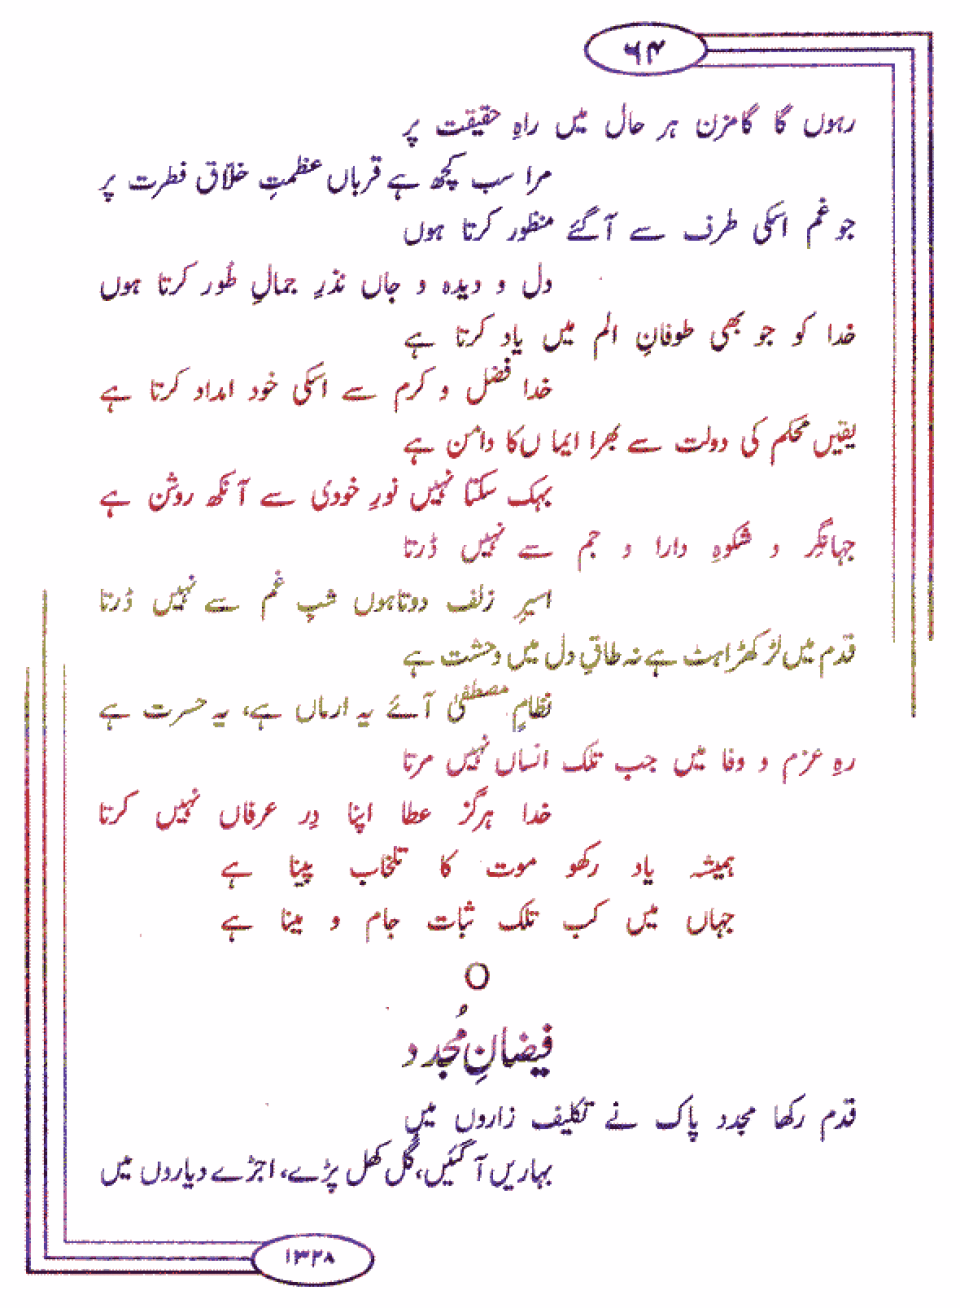 ۶۴
رہوں گا گامزن ہر حال میں راہِ حقیقت پر
مرا سب کچھ ہے قرباں عظمتِ خلّاقِ فطرت پر
جو غم اسکی طرف سے آگئے منظور کرتا ہوں
دل و دیدہ و جاں نذرِ جمالِ طُور کرتا ہوں
خدا کو جو بھی طوفانِ الم میں یاد کرتا ہے
خدا فضل و کرم سے اسکی خود امداد کرتا ہے
یقیں محکم کی دولت سے بھرا ایماں کا دامن ہے
بہک سکتا نہیں نورِ خودی سے آنکھ روشن ہے
جہانگر و شکوہِ دارا و جم سے نہیں ڈرتا
اسیرِ زلف دوتاہوں شبِ غم سے نہیں ڈرتا
قدم میں لڑکھڑاہٹ ہے نہ طاقِ دل میں وحشت ہے
نظامِ مصطفیٰ آئے یہ ارماں ہے، یہ حسرت ہے
رہِ عزم و وفا میں جب تلک انساں نہیں مرتا
خدا ہرگز عطا اپنا دِر عرفاں نہیں کرتا
ہمیشہ یاد رکھو موت کا تلخاب پینا ہے
جہاں میں کب تلک ثبات جام و مینا ہے
O
فیضانِ مُجدد
قدم رکھا مجدد پاک نے تکلیف زاروں میں
بہاریں آگئیں، گل کھل پڑے، اجڑے دیاروں میں
۱۳۲۸